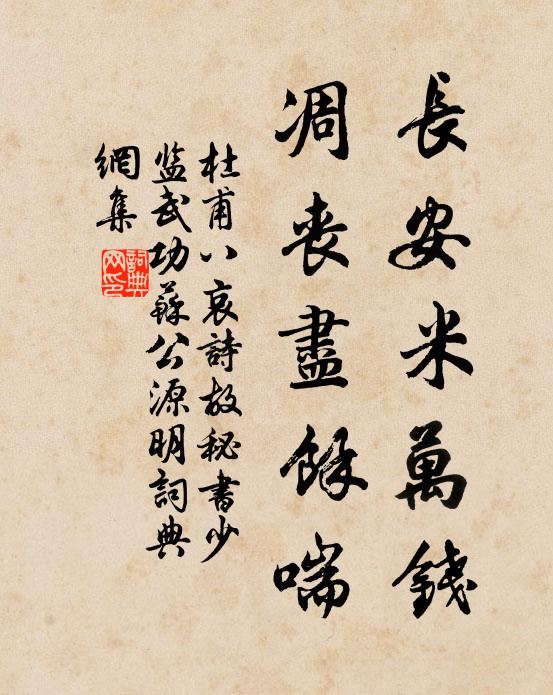 長安米萬錢
凋喪盡餘喘
杜甫八哀詩故秘書少
监武功蘇公源明詞典
網集
詞典
网印